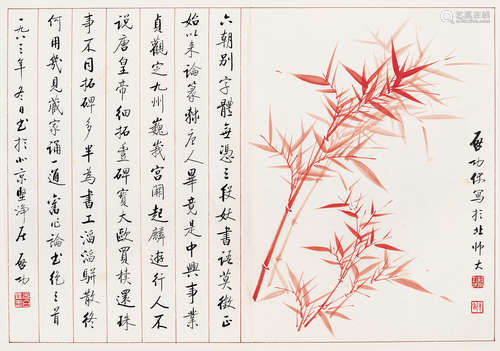 六朝别字體無憑三段妖書語莫徵正
始以來論篆隸唐人畢竟是中興事業
貞觀定九州巍峩宮闕起麟遊行人不
說唐皇帝細拓豐碑寶大歐買櫝還珠
事不同拓碑多半為書工滔滔駢散終
何用幾見藏家誦一通 舊作論書絕句三首
一九八三年冬日書於北京堅淨居 啟功
啟功寫於北師大